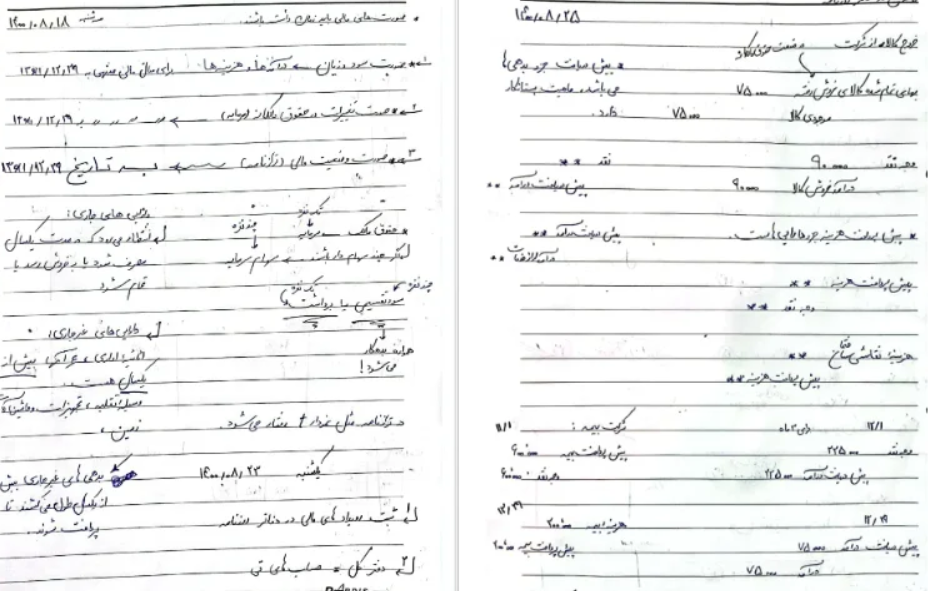 * صورت های مالی باید عنوان داشته باشند. شنبه ۱۴۰۰/۰۸/۱۸
۱- * صورت سود و زیان ← درآمدها و هزینه ها برای سال مالی منتهی به ۱۳x۱/۱۲/۲۹
۲- * صورت تغییرات در حقوق مالکانه (سرمایه) ← ۱۳x۱/۱۲/۲۹
۳- * صورت وضعیت مالی (ترازنامه) ← به تاریخ ۱۳x۱/۱۲/۲۹
تک نفره
* حقوق مالک ← سرمایه
چند نفره
اگر چند سهام دار باشند ← سهام سرمایه
چند نفره تک نفره
سود تقسیمی یا برداشت ها
همانند بدهکار
می باشد!
دارایی های جاری:
انتظار می رود که در مدت یکسال
مصرف شود یا به فروش برسد یا
تمام شود
دارایی های غیرجاری:
اثاثیه اداری عمر آنها بیش از
یکسال هست.
وسایل نقلیه، تجهیزات، ماشین آلات
زمین،
* ترازنامه مثل نمودار t نشان می شود.
یکشنبه ۱۴۰۰/۰۸/۲۳
بدهی های غیرجاری بیش
از یکسال طول می کشند تا
پرداخت شوند.
۱ ثبت رویدادهای مالی در دفاتر روزنامه
۲ دفتر کل * حساب های تی
۱۴۰۰/۰۸/۲۵
خروج کالا از شرکت
بهای تمام شده کالای فروش رفته ۷۵۰۰۰
موجودی کالا ۷۵۰۰۰
* پیش دریافت جزو بدهی ها
می باشد، ماهیت بستانکار
دارد.
وجه نقد ۹۰۰۰۰
درآمد فروش کالا ۹۰۰۰۰
نقد **
پیش دریافت درآمد **
* پیش پرداخت هزینه جزو دارایی است.
پیش دریافت درآمد **
درآمد از خدمات **
پیش پرداخت هزینه **
وجه نقد **
هزینه نقاشی ساختمان **
پیش پرداخت هزینه **
۱۲/۱ برای ۳ ماه شرکت بیمه: ۱۱/۱
وجه نقد ۲۲۵۰۰۰
پیش دریافت درآمد ۲۲۵۰۰۰
پیش پرداخت بیمه ۶۰۰۰۰
وجه نقد ۶۰۰۰۰
۱۲/۲۹
پیش دریافت درآمد ۷۵۰۰۰
درآمد ۷۵۰۰۰
۱۲/۲۹
هزینه بیمه ۲۰۰۰۰
پیش پرداخت بیمه ۲۰۰۰۰